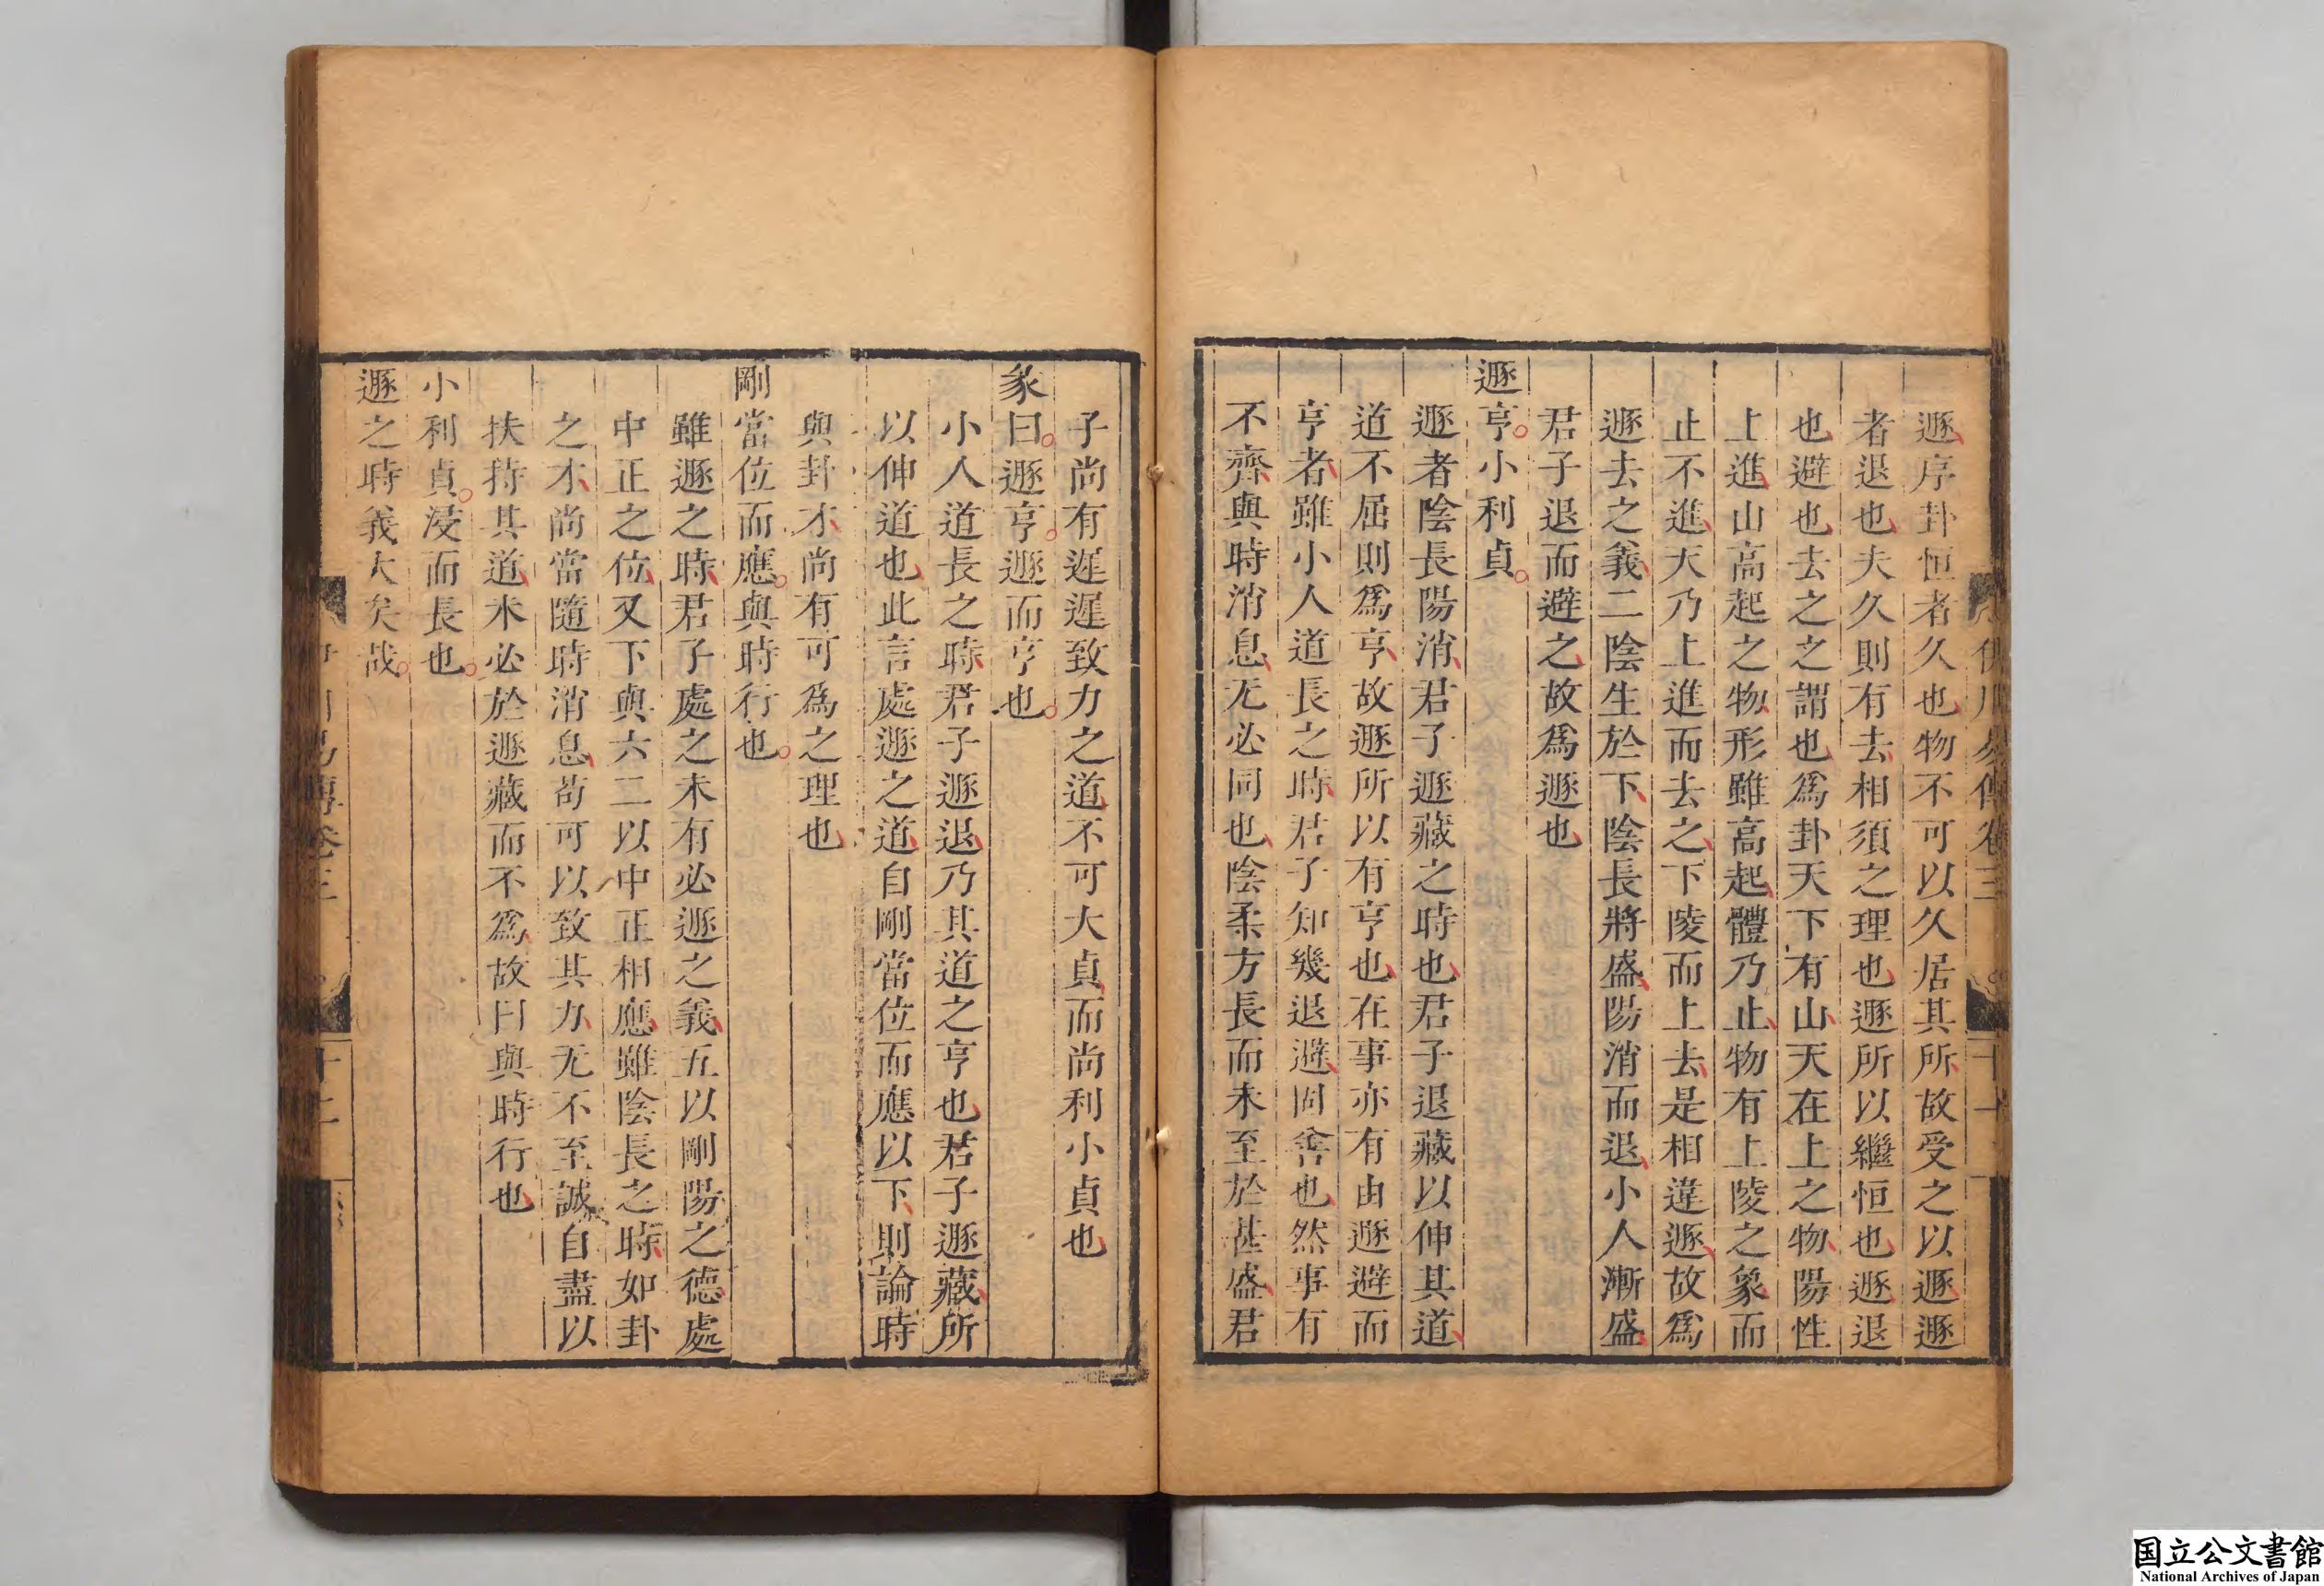 遯序卦恒者久也物不可以久居其所故受之以遯遯
者退也夫久則有去相須之理也遯所以繼恒也遯退
也避也去之之謂也爲卦天下有山天在上之物陽性
上進山高起之物形雖高起體乃止物有上陵之象而
止不進天乃上進而去之下陵而上去是相違遯故爲
遯去之義二陰生於下陰長將盛陽消而退小人漸盛
君子退而避之故爲遯也
遯亨小利貞
遯者陰長陽消君子遯藏之時也君子退藏以伸其道
道不屈則爲亨故遯所以有亨也在事亦有由遯避而
亨者雖小人道長之時君子知幾退避固善也然事有
不齊與時消息无必同也陰柔方長而未至於甚盛君
子尚有遲遲致力之道不可大貞而尚利小貞也
彖曰遯亨遯而亨也
小人道長之時君子遯退乃其道之亨也君子遯藏所
以伸道也此言處遯之道自剛當位而應以下則論時
與卦才尚有可爲之理也
剛當位而應與時行也
雖遯之時君子處之未有必遯之義五以剛陽之德處
中正之位又下與六二以中正相應雖陰長之時如卦
之才尚當隨時消息苟可以致其力无不至誠自盡以
扶持其道未必於遯藏而不爲故曰與時行也
小利貞浸而長也
遯之時義大矣哉
易傳卷三
十二
国立公文書館
National Archives of Japan